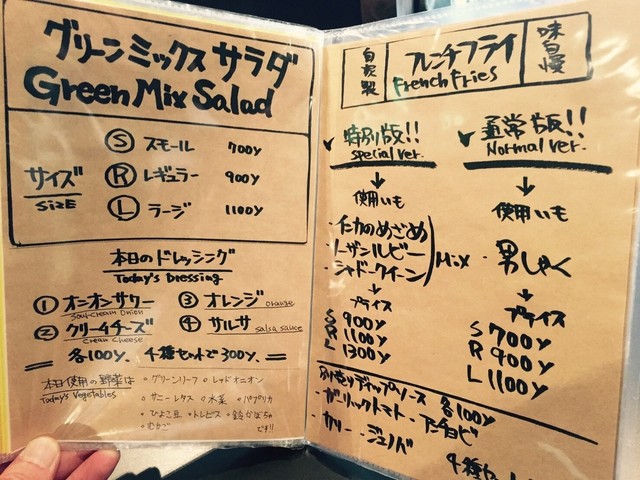 グリーンミックスサラダ
Green Mix Salad
サイズ
SIZE
Ⓢ スモール 700y
Ⓡ レギュラー 900y
Ⓛ ラージ 1100y
本日のドレッシング
Today's Dressing
① オニオンサワー
Sour cream onion
③ オレンジ orange
② クリームチーズ
Cream cheese
④ サルサ salsa sauce
各100y、4種セットで300y、
本日使用の野菜は
Today's Vegetables
・グリーンリーフ ・レッドオニオン
・サニーレタス ・水菜 ・パプリカ
・ひよこ豆 ・トレビス ・鈴かぼちゃ
です!!
自家製
フレンチフライ
French fries
味自慢
✓ 特別版!!
Special ver.
↓
使用いも
・インカのめざめ
・ノーザンルビー
・シャドークイーン
Mix
↓
プライス
S 900y
R 1100y
L 1300y
✓ 通常版!!
Normal ver.
↓
使用いも
・男しゃく
↓
プライス
S 700y
R 900y
L 1100y
別売りディップソース 各100y
・ガーリックトマト ・アンチョビ
・カリー ・ジェノバ
4種セ